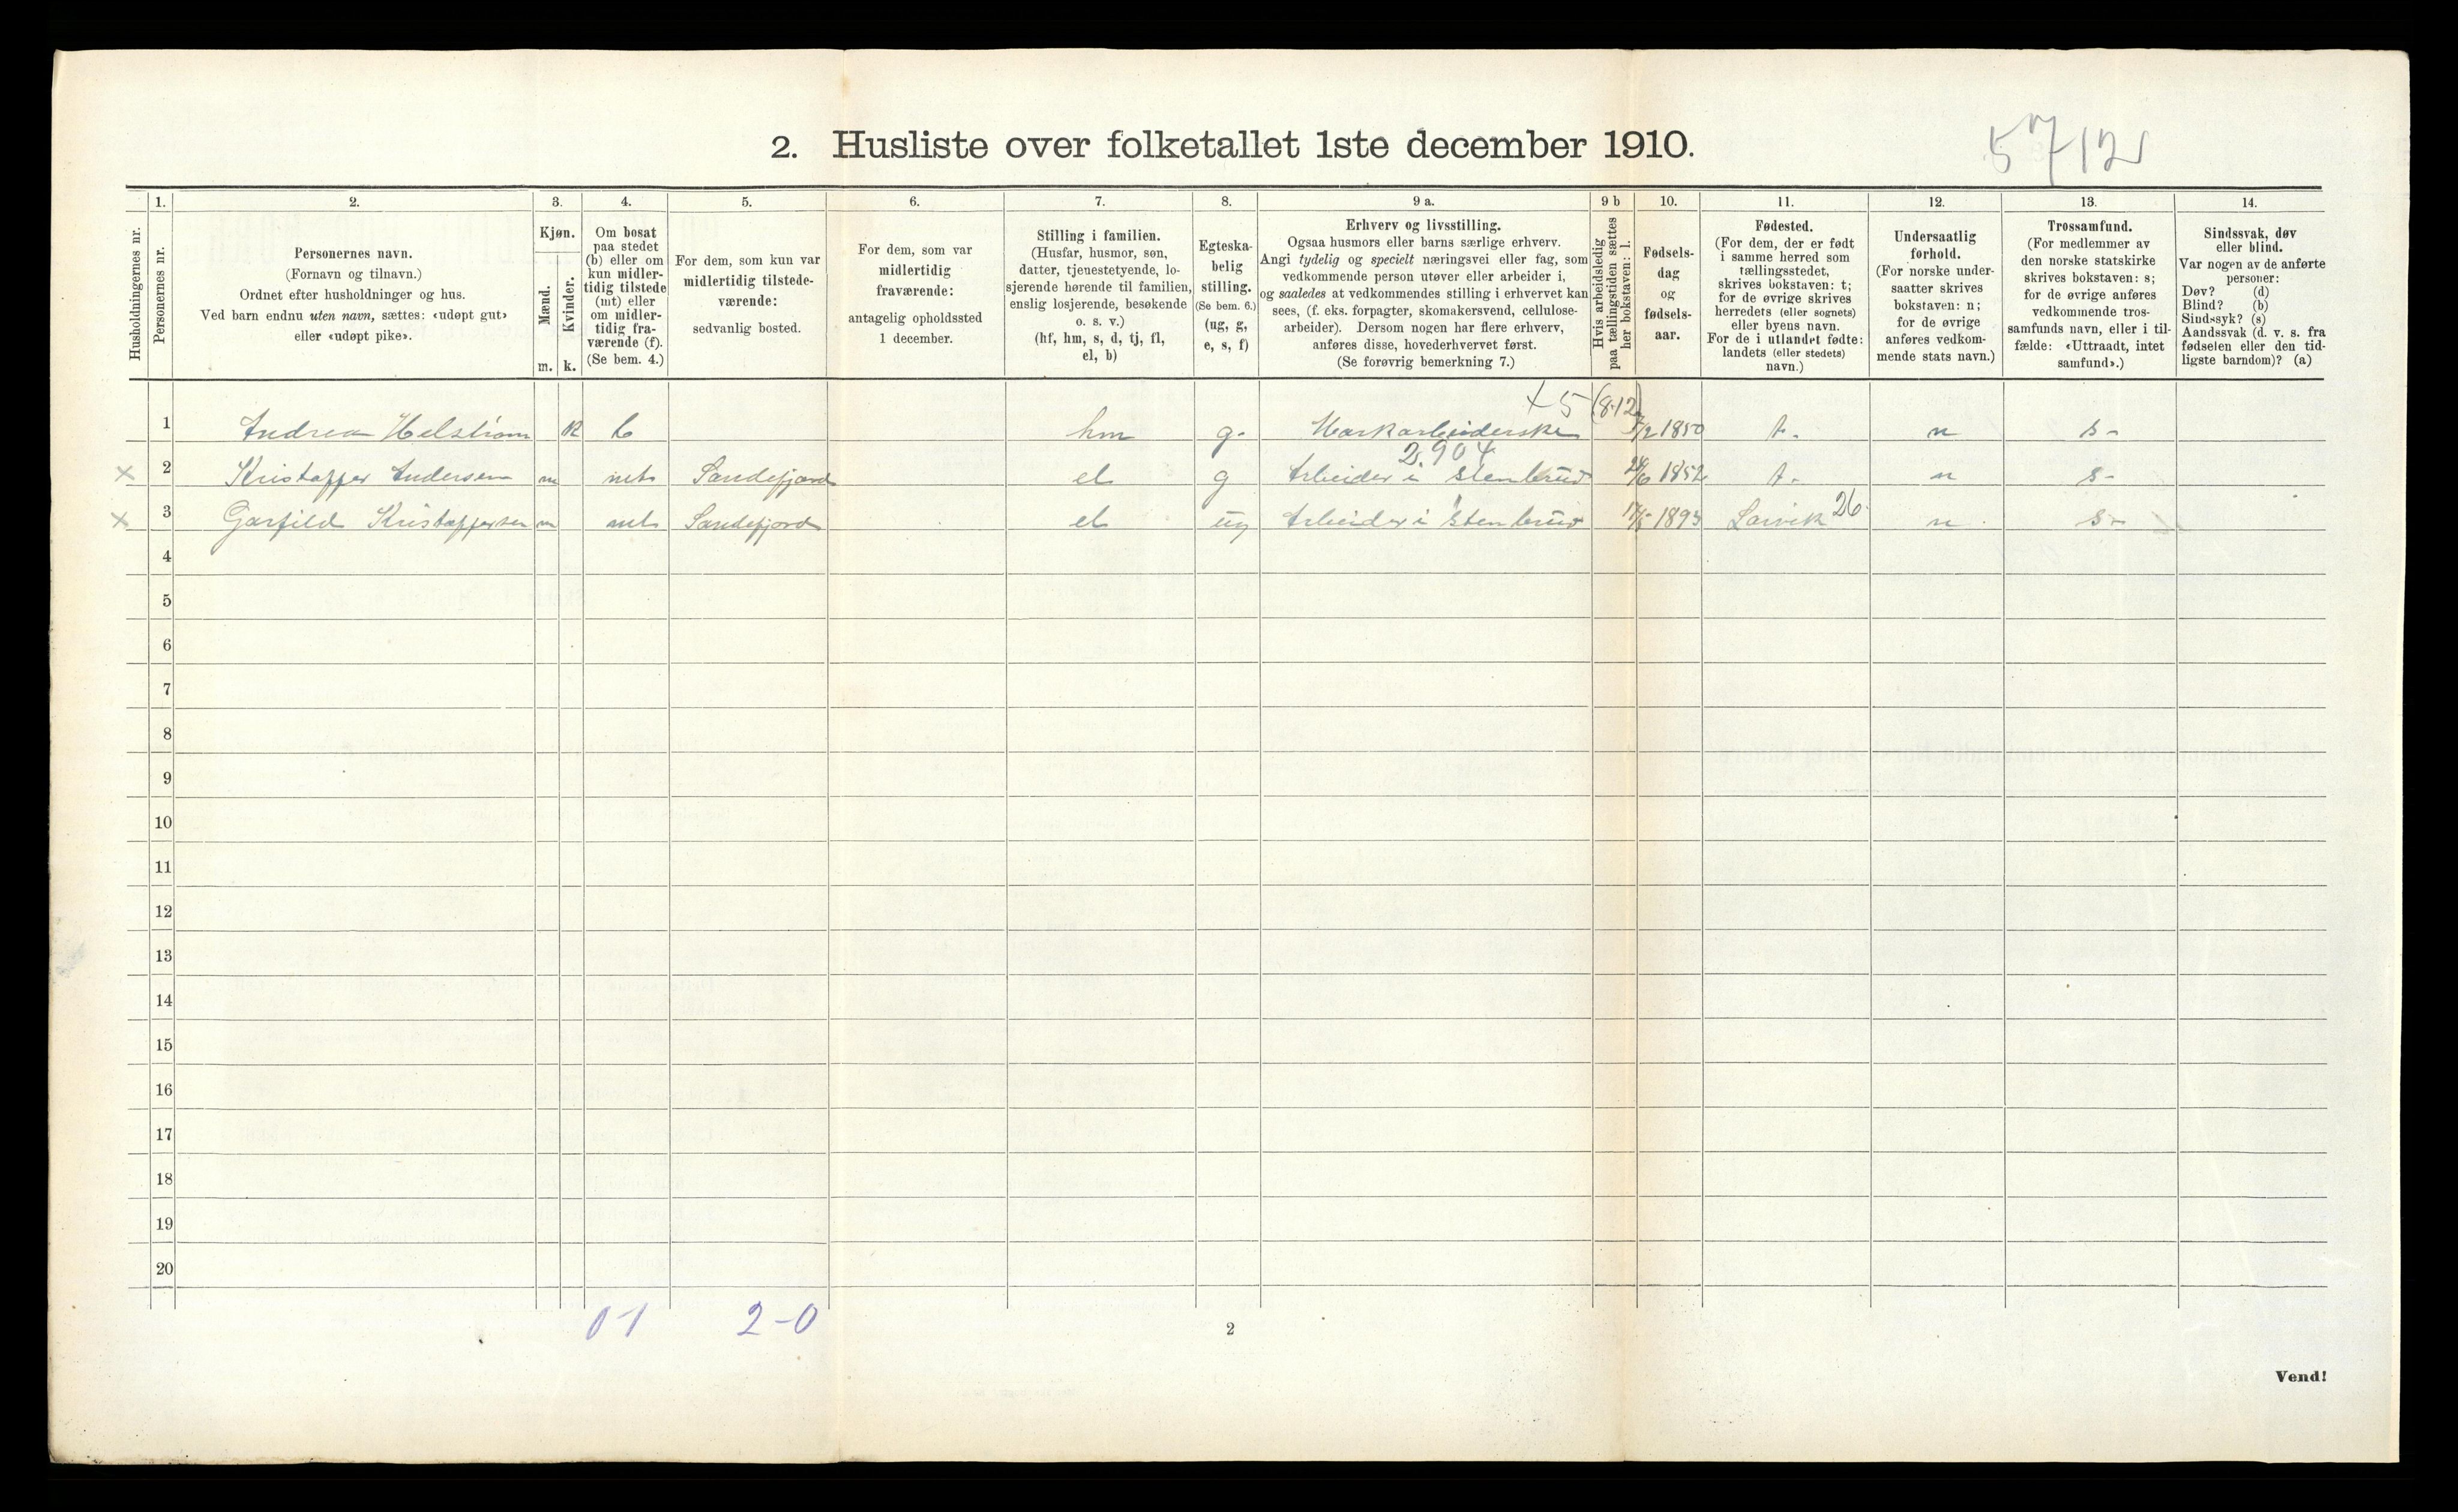 5712
2. Husliste over folketallet 1ste december 1910.
Husholdningernes nr.
1.
Personernes nr.
2.
Personernes navn.
(Fornavn og tilnavn.)
Ordnet efter husholdninger og hus.
Ved barn endnu uten navn, sættes: «udøpt gut»
eller «udøpt pike».
3.
Kjøn.
Mænd.
Kvinder.
m. k.
4.
Om bosat
paa stedet
(b) eller om
kun midler-
tidig tilstede
(mt) eller
om midler-
tidig fra-
værende (f).
(Se bem. 4.)
5.
For dem, som kun var
midlertidig tilstede-
værende:
sedvanlig bosted.
6.
For dem, som var
midlertidig
fraværende:
antagelig opholdssted
1 december.
7.
Stilling i familien.
(Husfar, husmor, søn,
datter, tjenestetyende, lo-
sjerende hørende til familien,
enslig losjerende, besøkende
o. s. v.)
(hf, hm, s, d, tj, fl,
el, b)
8.
Egteska-
belig
stilling.
(Se bem. 6.)
(ug, g,
e, s, f)
9 a.
Erhverv og livsstilling.
Ogsaa husmors eller barns særlige erhverv.
Angi tydelig og specielt næringsvei eller fag, som
vedkommende person utøver eller arbeider i,
og saaledes at vedkommendes stilling i erhvervet kan
sees, (f. eks. forpagter, skomakersvend, cellulose-
arbeider). Dersom nogen har flere erhverv,
anføres disse, hovederhvervet først.
(Se forøvrig bemerkning 7.)
9 b
Hvis arbeidsledig
paa tællingstiden sættes
her bokstaven: l.
10.
Fødsels-
dag
og
fødsels-
aar.
11.
Fødested.
(For dem, der er født
i samme herred som
tællingsstedet,
skrives bokstaven: t;
for de øvrige skrives
herredets (eller sognets)
eller byens navn.
For de i utlandet fødte:
landets (eller stedets)
navn.)
12.
Undersaatlig
forhold.
(For norske under-
saatter skrives
bokstaven: n;
for de øvrige
anføres vedkom-
mende stats navn.)
13.
Trossamfund.
(For medlemmer av
den norske statskirke
skrives bokstaven: s;
for de øvrige anføres
vedkommende tros-
samfunds navn, eller i til-
fælde: «Uttraadt, intet
samfund».)
14.
Sindssvak, døv
eller blind.
Var nogen av de anførte
personer:
Døv? (d)
Blind? (b)
Sindssyk? (s)
Aandssvak (d. v. s. fra
fødselen eller den tid-
ligste barndom)? (a)
x 5 (8-12)
1 Andrea Helstrom k b hm g. Markarbeiderske 1850 t. n s-
2.904
x 2 Kristoffer Andersen m mt Sandefjord el g Arbeider i Stenbrud 1852 t. n s-
x 3 Garfild Kristoffersen m mt Sandefjord el ug Arbeider i Stenbrud 1893 Larvik 26 n s-
4
5
6
7
8
9
10
11
12
13
14
15
16
17
18
19
20
0-1 2-0
2
Vend!